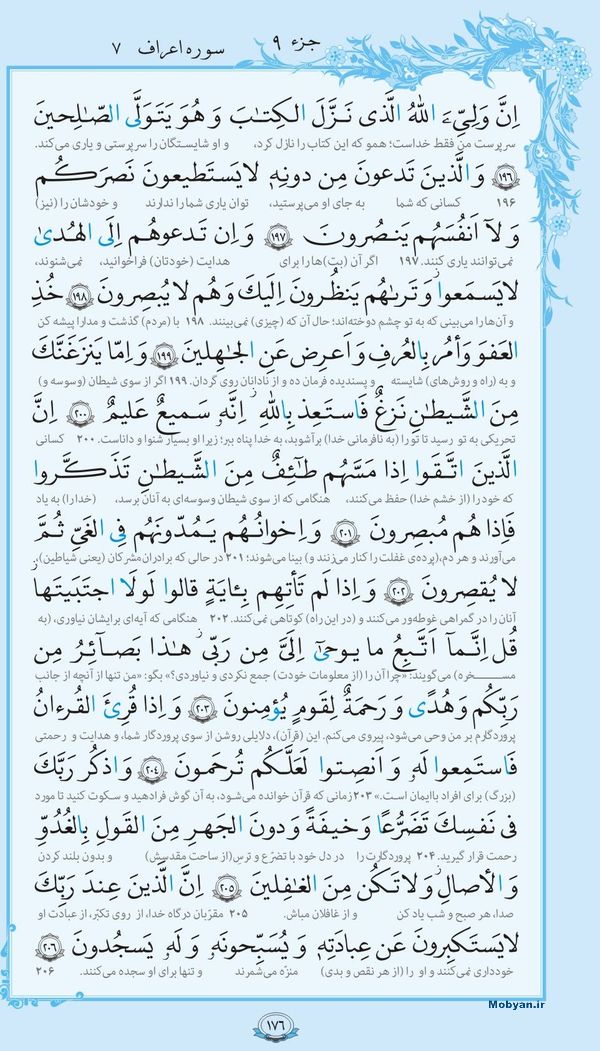 جزء ۹
سوره اعراف ۷
اِنَّ وَلِیِّیَ اللّٰهُ الَّذی نَزَّلَ الکِتٰبَ وَ هُوَ یَتَوَلَّی الصّٰلِحینَ
سرپرست من فقط خداست؛ همو که این کتاب را نازل کرد، و او شایستگان را سرپرستی و یاری می‌کند.
۱۹۶ وَ الَّذینَ تَدعونَ مِن دونِهٖ لایَستَطیعونَ نَصرَکُم
۱۹۶ کسانی که شما به جای او می‌پرستید، توان یاری شما را ندارند و خودشان را (نیز)
وَ لآ اَنفُسَهُم یَنصُرونَ ۱۹۷ وَ اِن تَدعوهُم اِلَی الهُدیٰ
نمی‌توانند یاری کنند. ۱۹۷ اگر آن (بت)ها را برای هدایت (خودتان) فراخوانید، نمی‌شنوند،
لایَسمَعوا وَ تَرىٰهُم یَنظُرونَ اِلَیکَ وَ هُم لا یُبصِرونَ ۱۹۸ خُذِ
و آن‌ها را می‌بینی که به تو چشم دوخته‌اند؛ حال آن که (چیزی) نمی‌بینند. ۱۹۸ با (مردم) گذشت و مدارا پیشه کن
العَفوَ وَأمُر بِالعُرفِ وَ اَعرِض عَنِ الجٰهِلینَ ۱۹۹ وَ اِمّا یَنزَغَنَّکَ
و به (راه و روش‌های) شایسته و پسندیده فرمان ده و از نادانان روی گردان. ۱۹۹ اگر از سوی شیطان (وسوسه و)
مِنَ الشَّیطٰنِ نَزغٌ فَاستَعِذ بِاللّٰهِ اِنَّهٗ سَمیعٌ عَلیمٌ ۲۰۰ اِنَّ
تحریکی به تو رسید تا تو را (به نافرمانی خدا) برآشوبد، به خدا پناه ببر؛ زیرا او بسیار شنوا و داناست. ۲۰۰ کسانی
الَّذینَ اتَّقَوا اِذا مَسَّهُم طٰٓائِفٌ مِنَ الشَّیطٰنِ تَذَکَّروا
که خود را (از خشم خدا) حفظ می‌کنند، هنگامی که از سوی شیطان وسوسه‌ای به آنان برسد، (خدا را) به یاد
فَاِذا هُم مُبصِرونَ ۲۰۱ وَ اِخوانُهُم یَمُدّونَهُم فِی الغَیِّ ثُمَّ
می‌آورند و هر دم، (پرده‌ی غفلت را کنار می‌زنند و) بینا می‌شوند؛ ۲۰۱ در حالی که برادران مشرکان (یعنی شیاطین)،
لا یُقصِرونَ ۲۰۲ وَ اِذا لَم تَأتِهِم بِـٔایَةٍ قالوا لَولَا اجتَبَیتَها
آنان را در گمراهی غوطه‌ور می‌کنند و (در این راه) کوتاهی نمی‌کنند. ۲۰۲ هنگامی که آیه‌ای برایشان نیاوری، (به
قُل اِنَّمآ اَتَّبِعُ ما یوحیٰٓ اِلَیَّ مِن رَبّی هٰذا بَصآئِرُ مِن
مسخره) می‌گویند: «چرا آن را (از معلومات خودت) جمع نکردی و نیاوردی؟» بگو: «من تنها از آنچه از جانب
رَبِّکُم وَ هُدًی وَ رَحمَةٌ لِقَومٍ یُؤمِنونَ ۲۰۳ وَ اِذا قُرِئَ القُرءانُ
پروردگارم بر من وحی می‌شود، پیروی می‌کنم. این (قرآن)، دلایلی روشن از سوی پروردگار شما، و هدایت و رحمتی
فَاستَمِعوا لَهٗ وَ اَنصِتوا لَعَلَّکُم تُرحَمونَ ۲۰۴ وَ اذکُر رَبَّکَ
(بزرگ) برای افراد باایمان است.» ۲۰۳ زمانی که قرآن خوانده می‌شود، به آن گوش فرادهید و سکوت کنید تا مورد
فی نَفسِکَ تَضَرُّعًا وَ خیفَةً وَ دونَ الجَهرِ مِنَ القَولِ بِالغُدُوِّ
رحمت قرار گیرید. ۲۰۴ پروردگارت را در دل خود با تضرّع و ترس (از ساحت مقدسش) و بدون بلند کردن
وَ الأصالِ وَ لاتَکُن مِنَ الغٰفِلینَ ۲۰۵ اِنَّ الَّذینَ عِندَ رَبِّکَ
صدا، هر صبح و شب یاد کن و از غافلان مباش. ۲۰۵ مقرّبان درگاه خدا، از روی تکبّر، از عبادت او
لایَستَکبِرونَ عَن عِبادَتِهٖ وَ یُسَبِّحونَهٗ وَ لَهٗ یَسجُدونَ ۲۰۶
خودداری نمی‌کنند و او را (از هر نقص و بدی) منزّه می‌شمرند و تنها برای او سجده می‌کنند. ۲۰۶
Mobyan.ir
۱۷۶